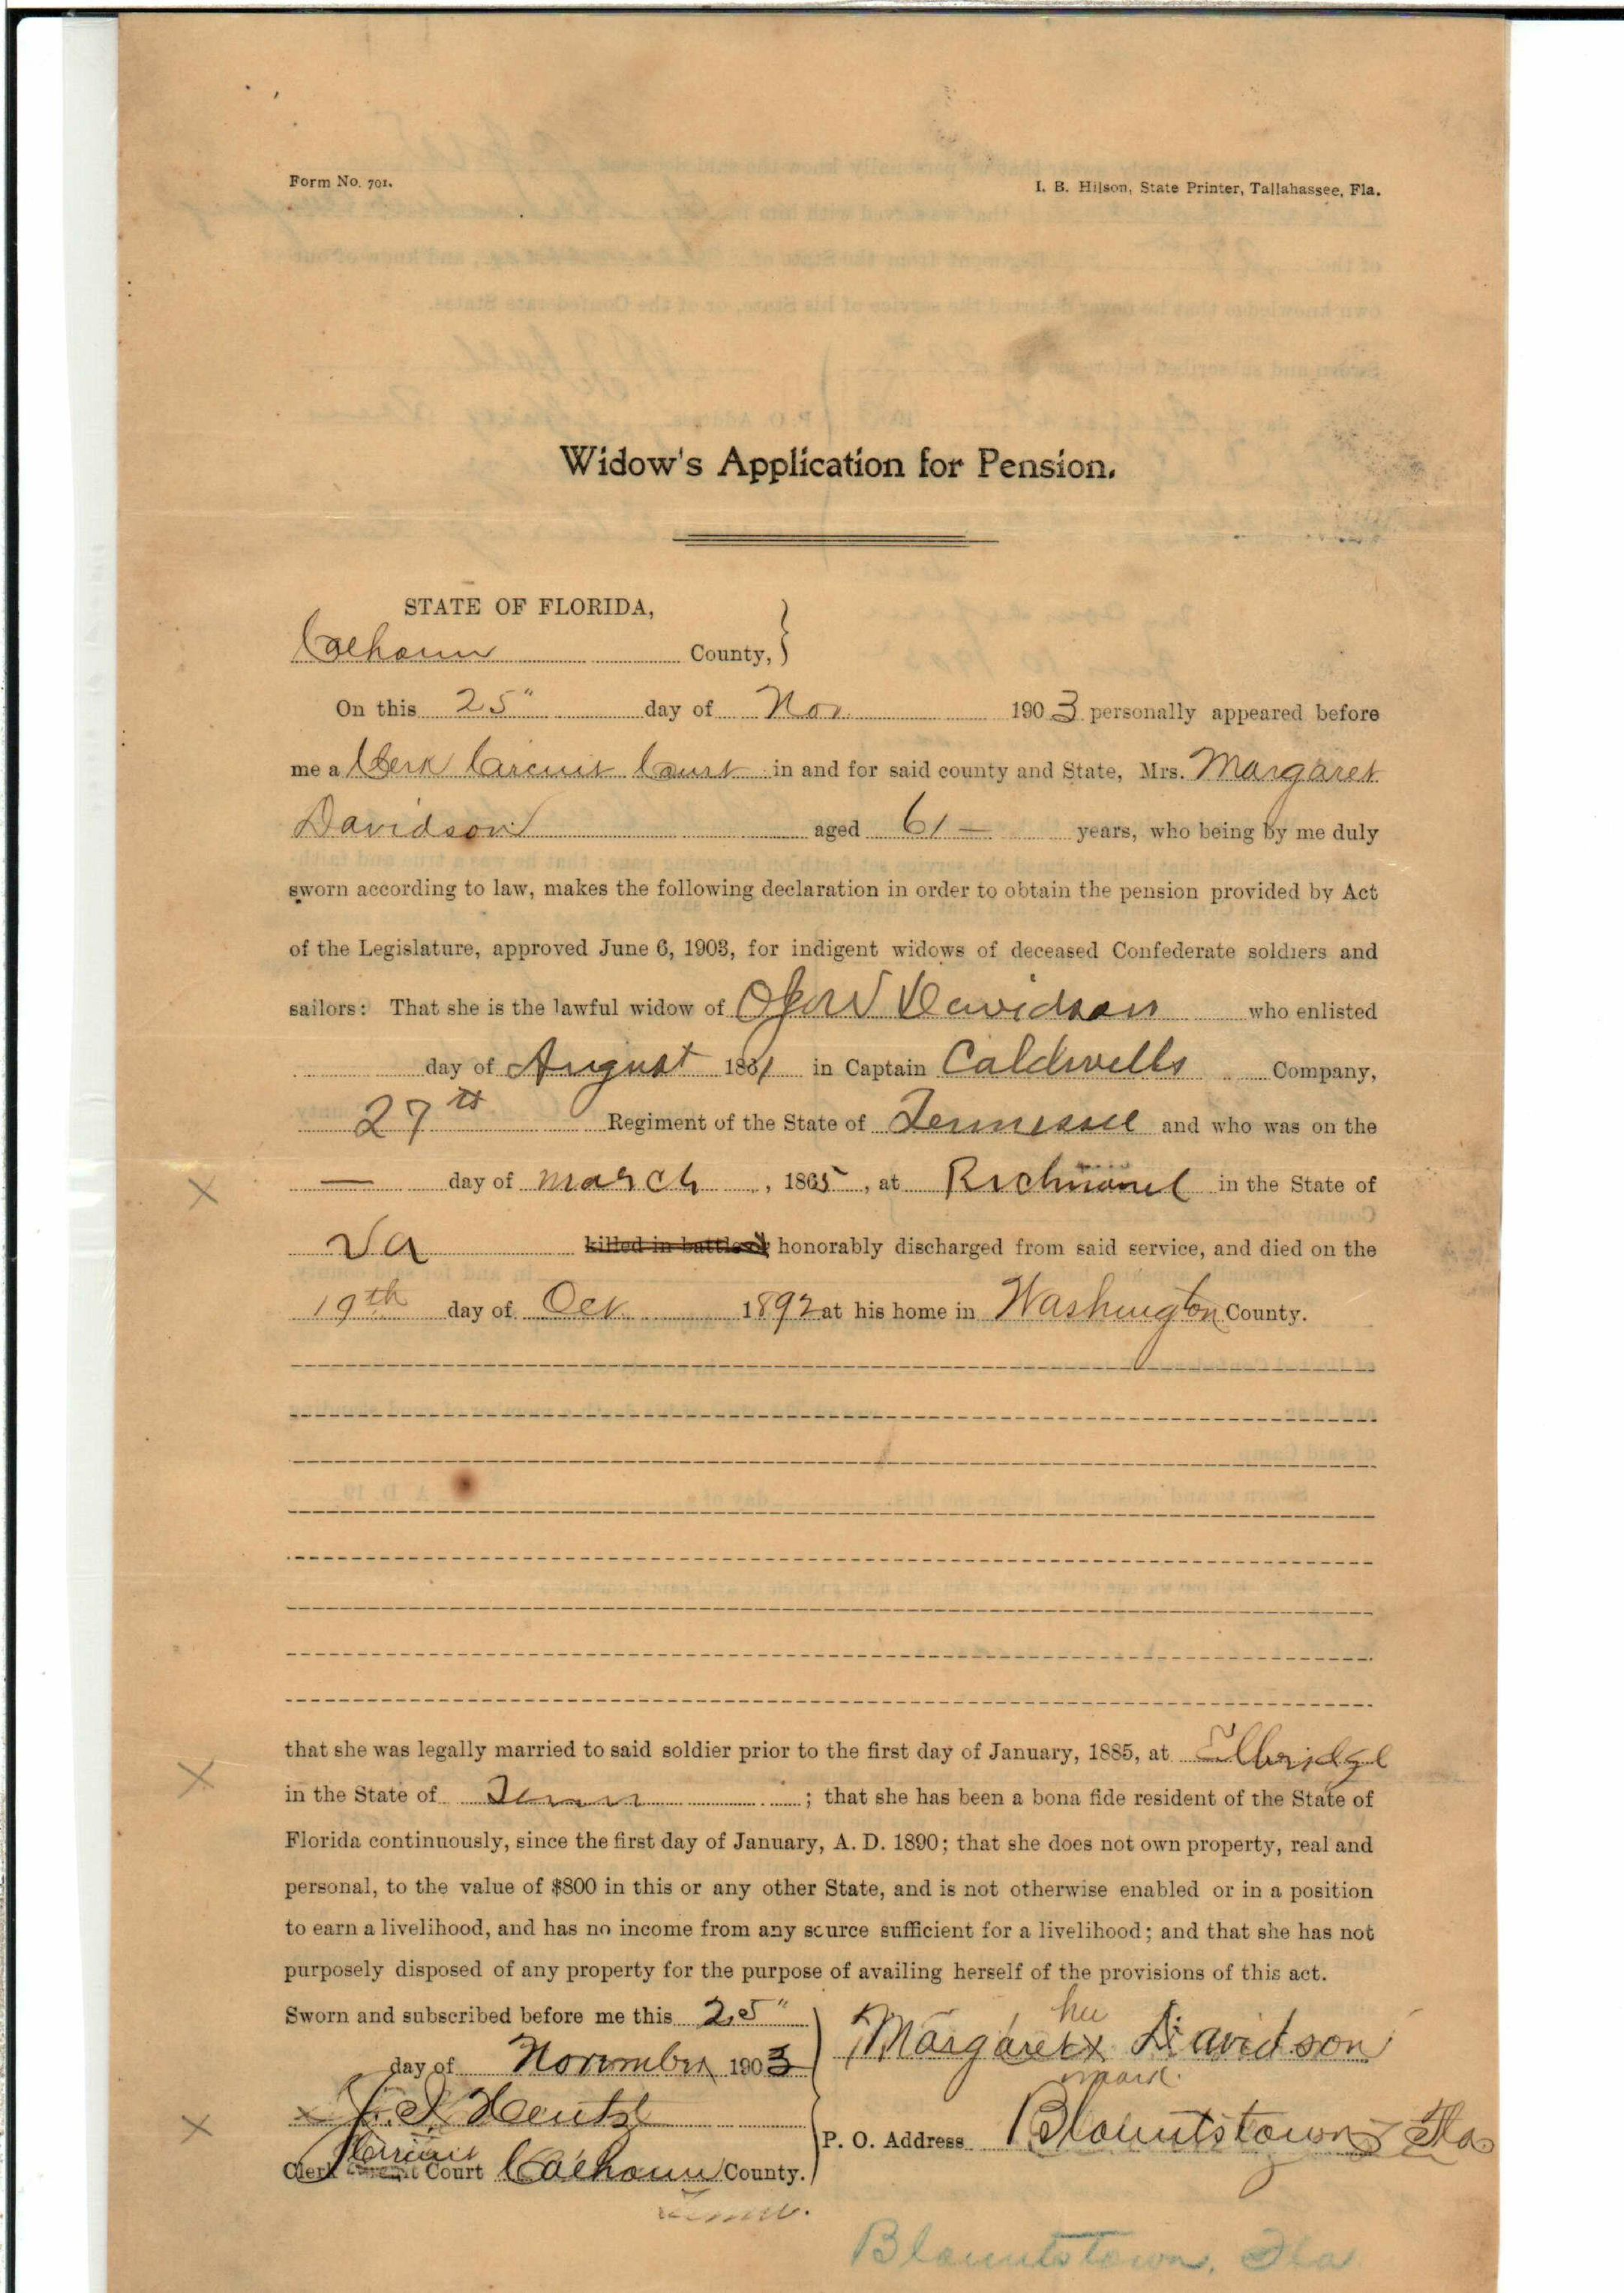 Form No. 701.
I. B. Hilson, State Printer, Tallahassee, Fla.
Widow's Application for Pension.
STATE OF FLORIDA,
Calhoun County, }
On this 25" day of Nov 1903 personally appeared before
me a Clerk Circuit Court in and for said county and State, Mrs. Margaret
Davidson aged 61 — years, who being by me duly
sworn according to law, makes the following declaration in order to obtain the pension provided by Act
of the Legislature, approved June 6, 1903, for indigent widows of deceased Confederate soldiers and
sailors: That she is the lawful widow of Davidson who enlisted
day of August 1861 in Captain Caldwells Company,
27th Regiment of the State of Tennessee and who was on the
— day of march, 1865, at Richmond in the State of
Va killed in battle or honorably discharged from said service, and died on the
19th day of Oct 1892 at his home in Washington County.
that she was legally married to said soldier prior to the first day of January, 1885, at Elbridge
in the State of Tenn; that she has been a bona fide resident of the State of
Florida continuously, since the first day of January, A. D. 1890; that she does not own property, real and
personal, to the value of $800 in this or any other State, and is not otherwise enabled or in a position
to earn a livelihood, and has no income from any source sufficient for a livelihood; and that she has not
purposely disposed of any property for the purpose of availing herself of the provisions of this act.
Sworn and subscribed before me this 25"
day of November 1903
Clerk Circuit Court Calhoun County.
her
Margaret x Davidson
mark.
P. O. Address Blountstown Fla
Blountstown, Fla